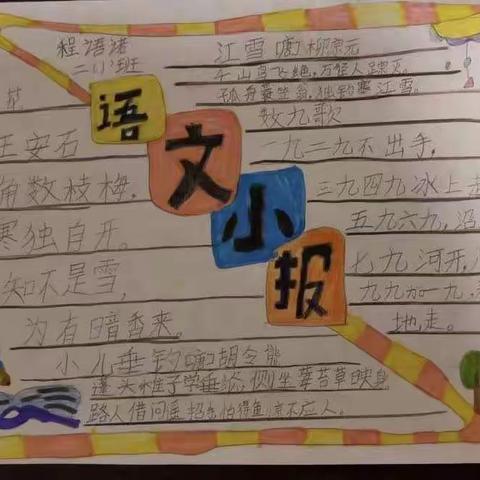 程语诺
二(1)班
语文小报
王安石
角数枝梅,
寒独自开。
知不是雪,
为有暗香来。
江雪 唐 柳宗元
千山鸟飞绝,万径人踪灭。
孤舟蓑笠翁,独钓寒江雪。
数九歌
一九二九不出手,
三九四九冰上走
五九六九,沿
七九河开,
九九加一九,
地走。
小儿垂钓 唐 胡令能
蓬头稚子学垂纶,侧坐莓苔草映身
路人借问遥招手,怕得鱼惊不应人。